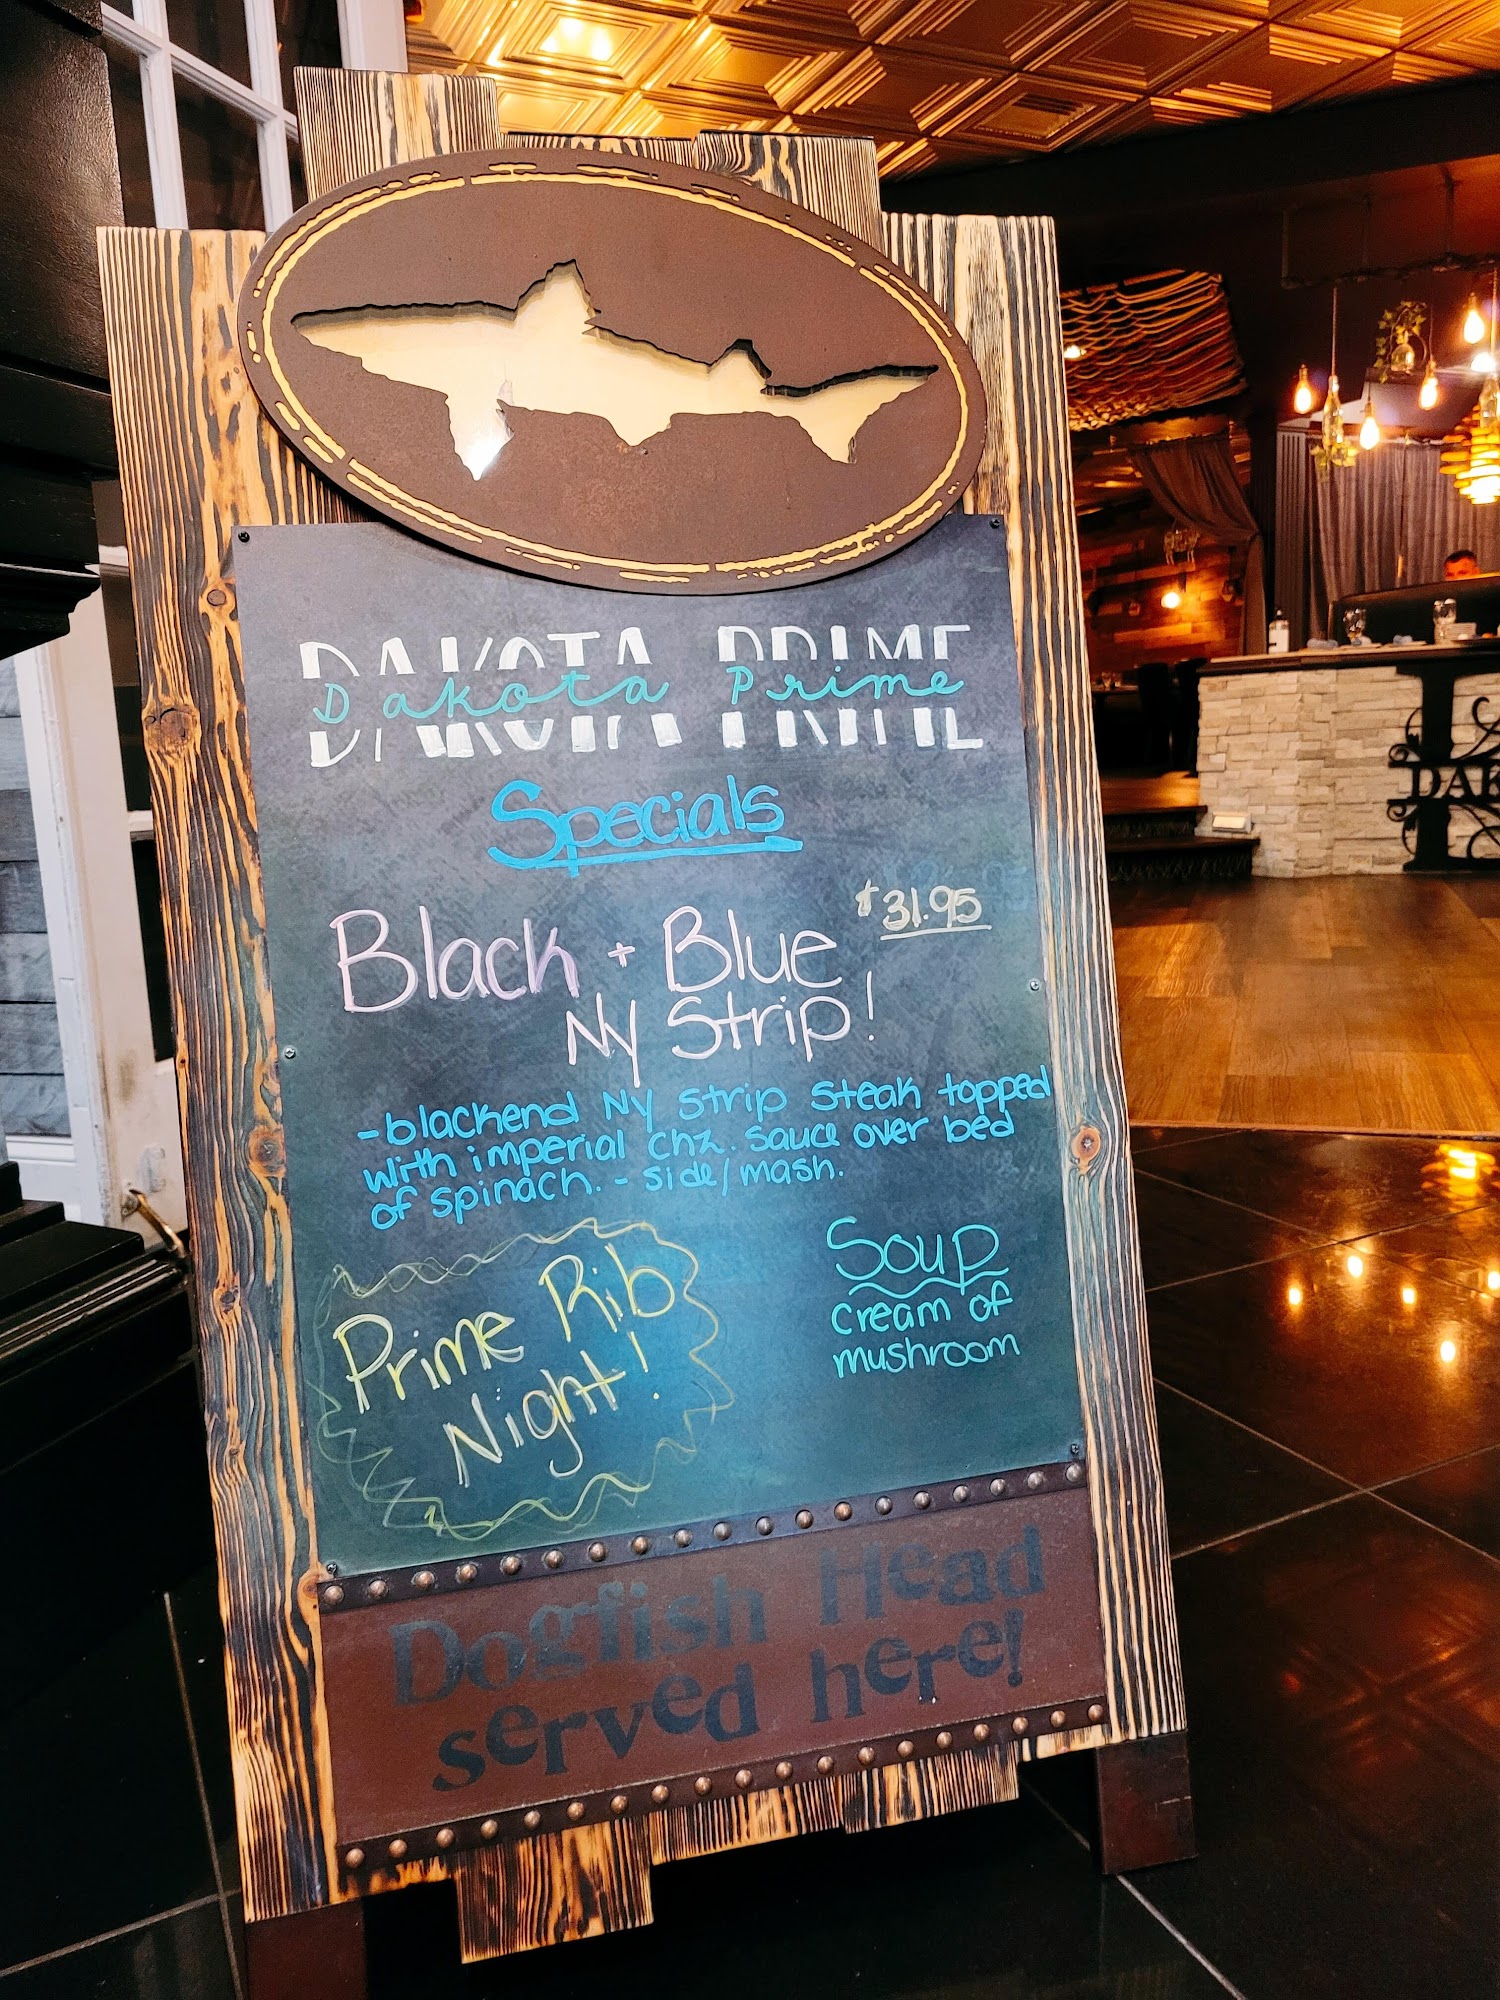 DAKOTA PRIME
Dakota Prime
Specials
$31.95
Black + Blue
NY Strip!
-blackend NY Strip Steak topped
with imperial chz. sauce over bed
of spinach. - side/mash.
Prime Rib
Night!
Soup
cream of
mushroom
Dogfish Head
served here!